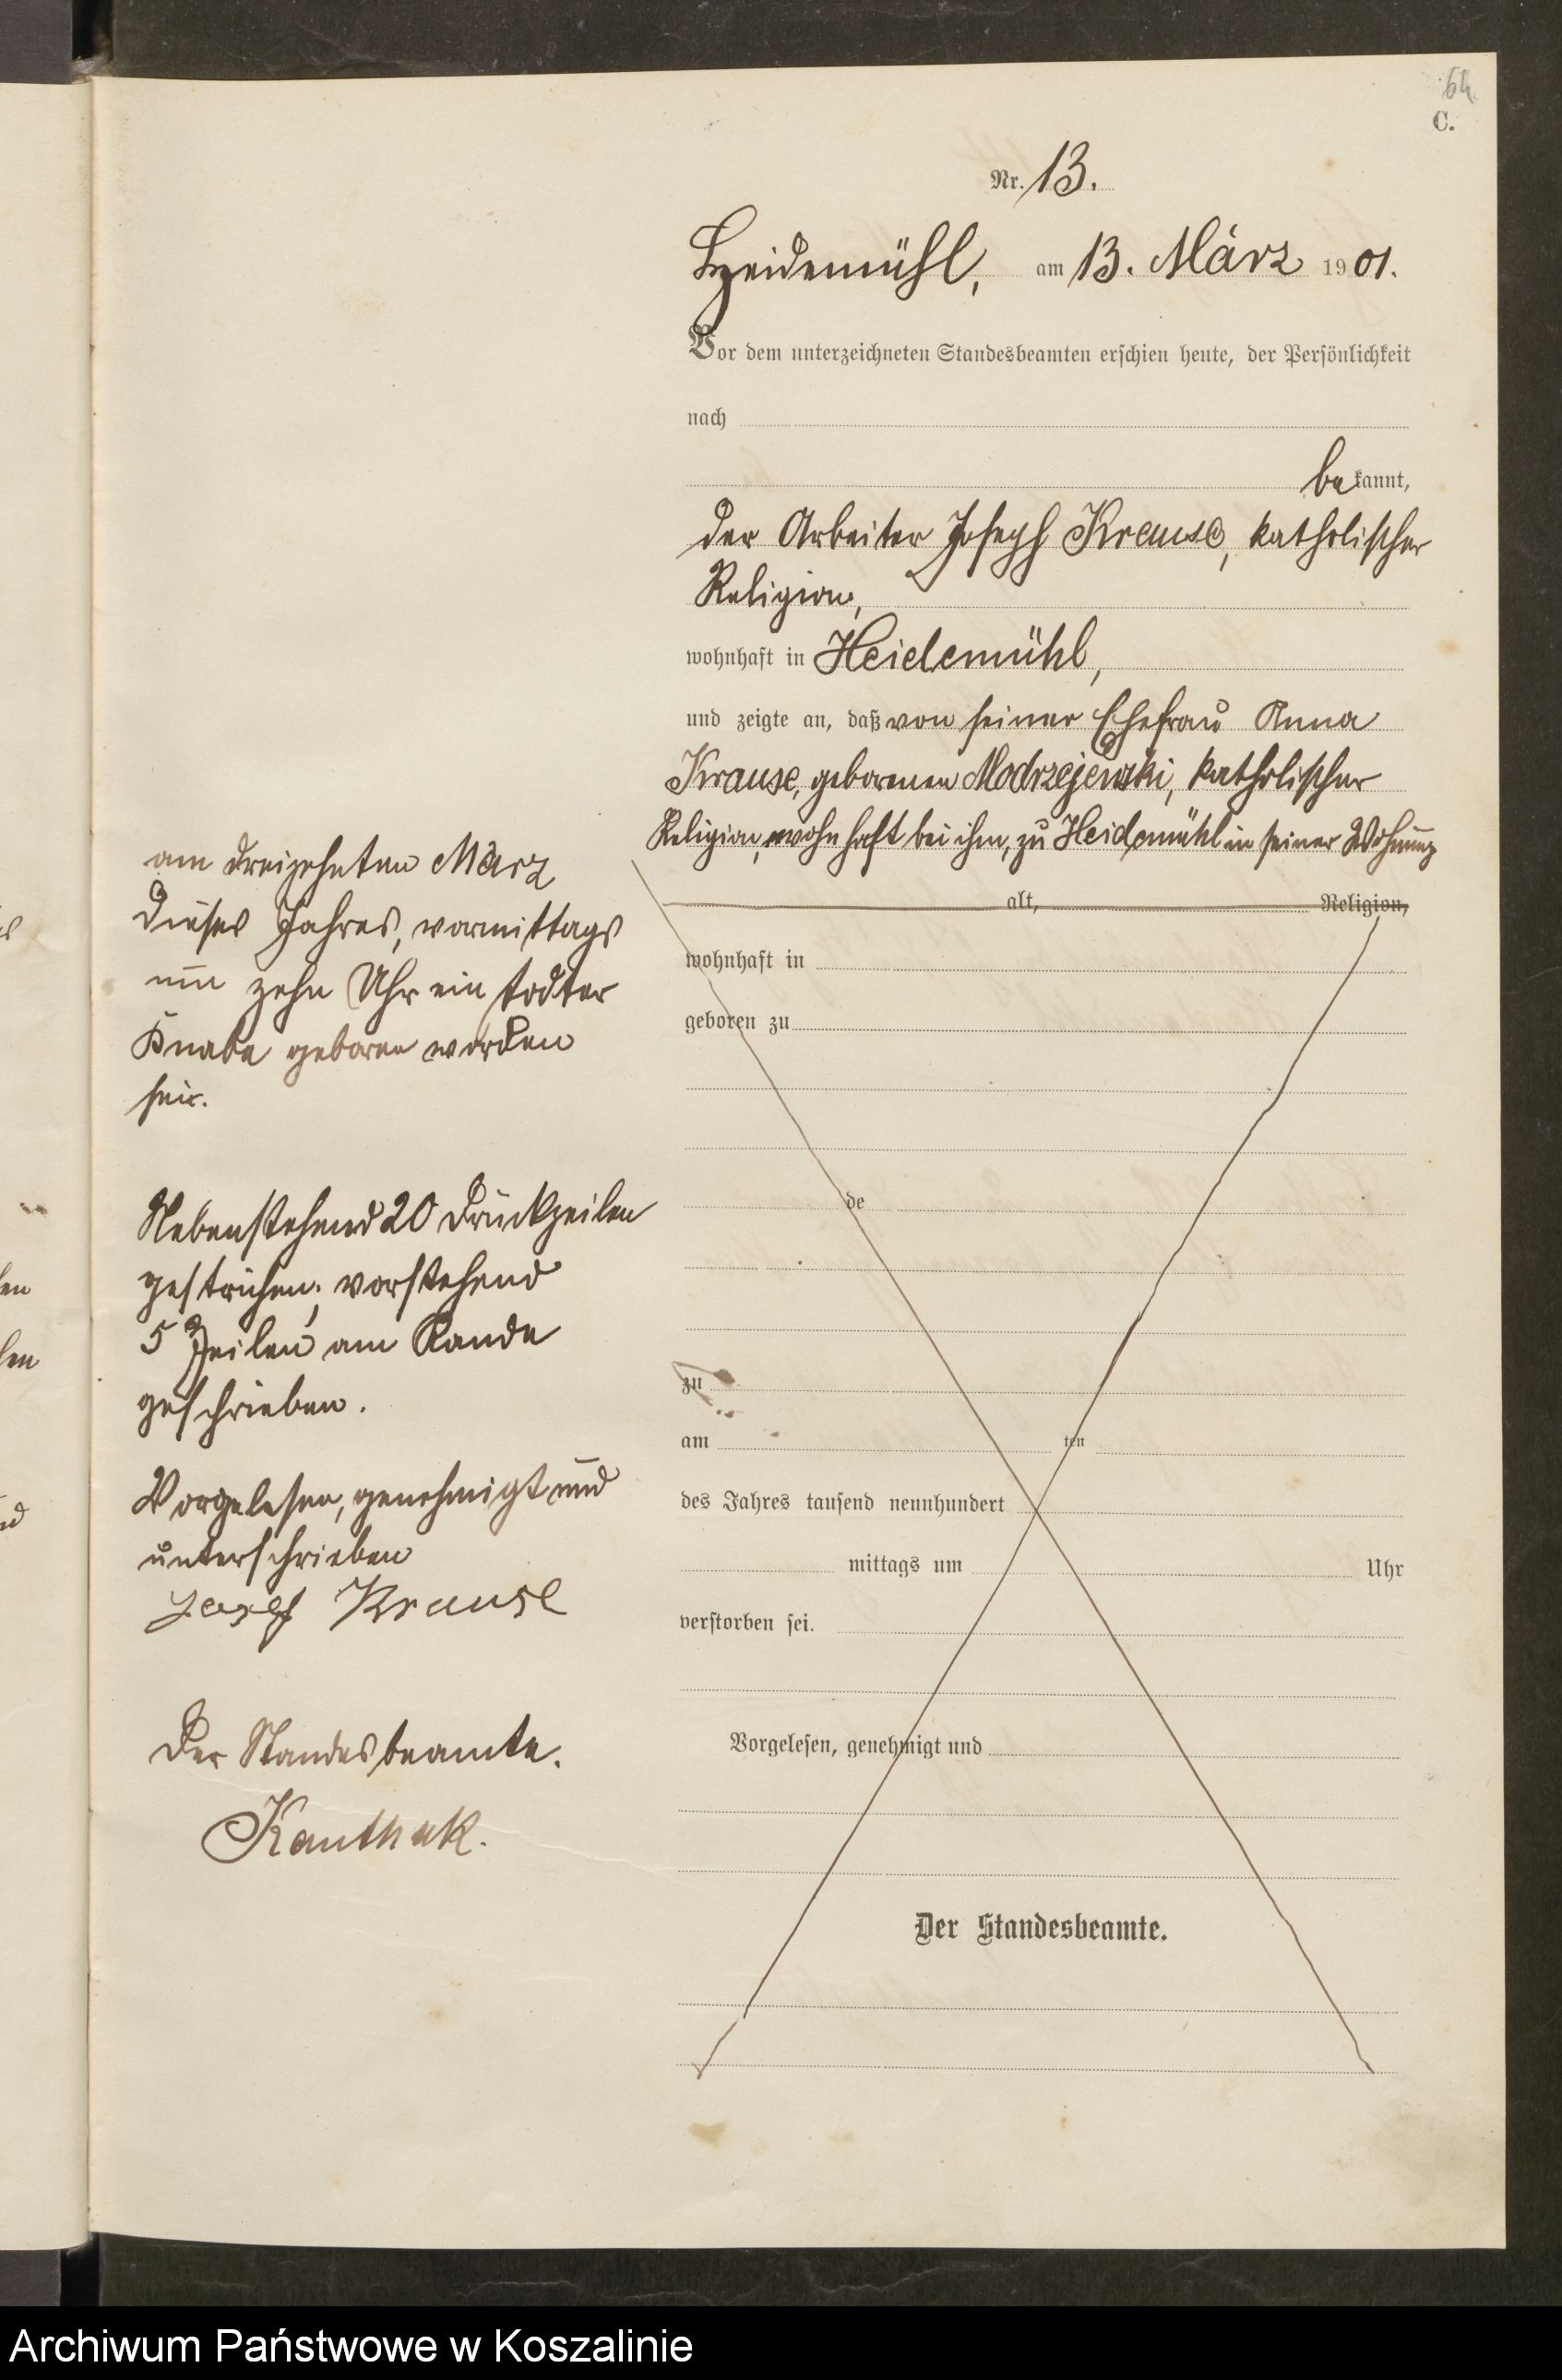 64
C.
Nr. 13.
Heidemühl, am 13. März 1901.
Vor dem unterzeichneten Standesbeamten erschien heute, der Persönlichkeit
nach
bekannt,
der Arbeiter Joseph Krause, katholischer
Religion,
wohnhaft in Heidemühl,
und zeigte an, daß von seiner Ehefrau Anna
Krause, geborenen Modrzejewski, katholischer
Religion, wohnhaft bei ihm, zu Heidemühl in seiner Wohnung
am dreizehnten März
dieses Jahres, vormittags
um zehn Uhr ein todter
Knabe geboren worden
sei.
Nebenstehend 20 Druckzeilen
gestrichen; vorstehend
5 Zeilen am Rande
geschrieben.
Vorgelesen, genehmigt und
unterschrieben
Josef Krause
Der Standesbeamte.
Kanthak.
alt, Religion,
wohnhaft in
geboren zu
de
zu
am ten
des Jahres tausend neunhundert
mittags um Uhr
verstorben sei.
Vorgelesen, genehmigt und
Der Standesbeamte.
Archiwum Państwowe w Koszalinie